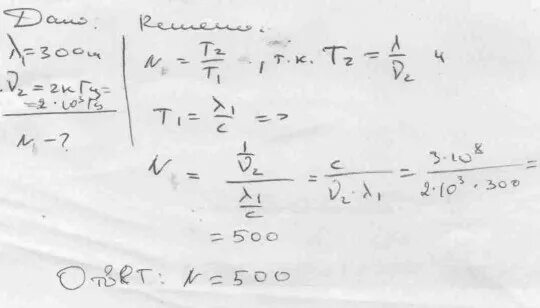 Дано: Решение:
λ₁=300м
ν₂ = 2кГц=
=2·10³Гц
N - ?
N = T₂/T₁, т.к. T₂ = λ/ν₂ и
T₁ = λ₁/c =>
N = (1/ν₂)/(λ₁/c) = c/(ν₂·λ₁) = 3·10⁸/(2·10³·300) =
= 500
Ответ: N = 500